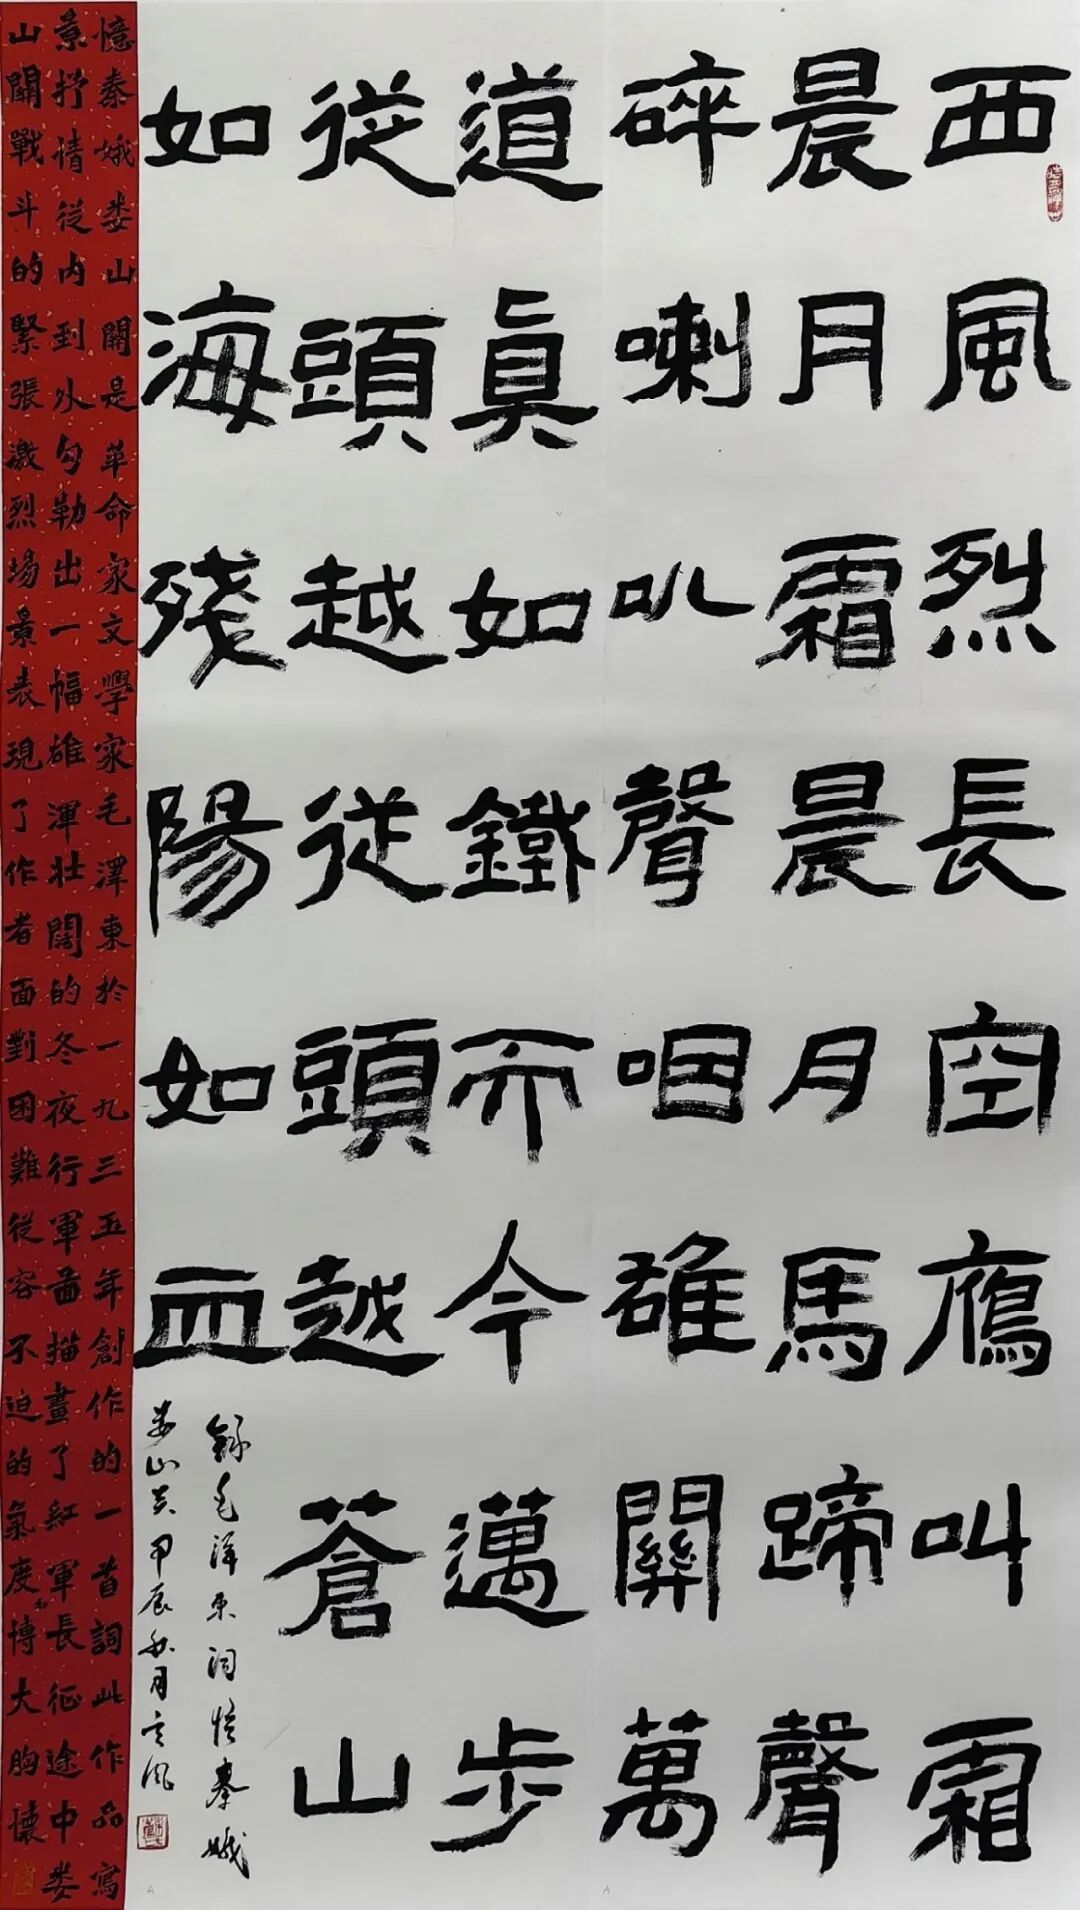 西風烈長空鴈叫霜
晨月霜晨月馬蹄聲
碎喇叭聲咽雄關萬
道眞如鐵而今邁步
從頭越從頭越蒼山
如海殘陽如血
錄毛澤東詞憶秦娥
娄山关甲辰秋月言风
憶秦娥娄山關是革命家文學家毛澤東於一九三五年創作的一首詞此作品寫
景抒情從内到外勾勒出一幅雄渾壮闊的冬夜行軍啚描畫了紅軍長征途中娄
山關戰斗的緊張激烈場景表現了作者面對困難從容不迫的氣度和博大胸懷